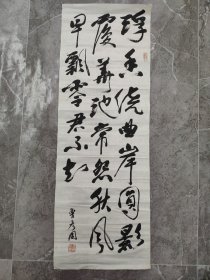 浮香绕曲岸圆影
覆华池常恐秋风
早飘零君不知